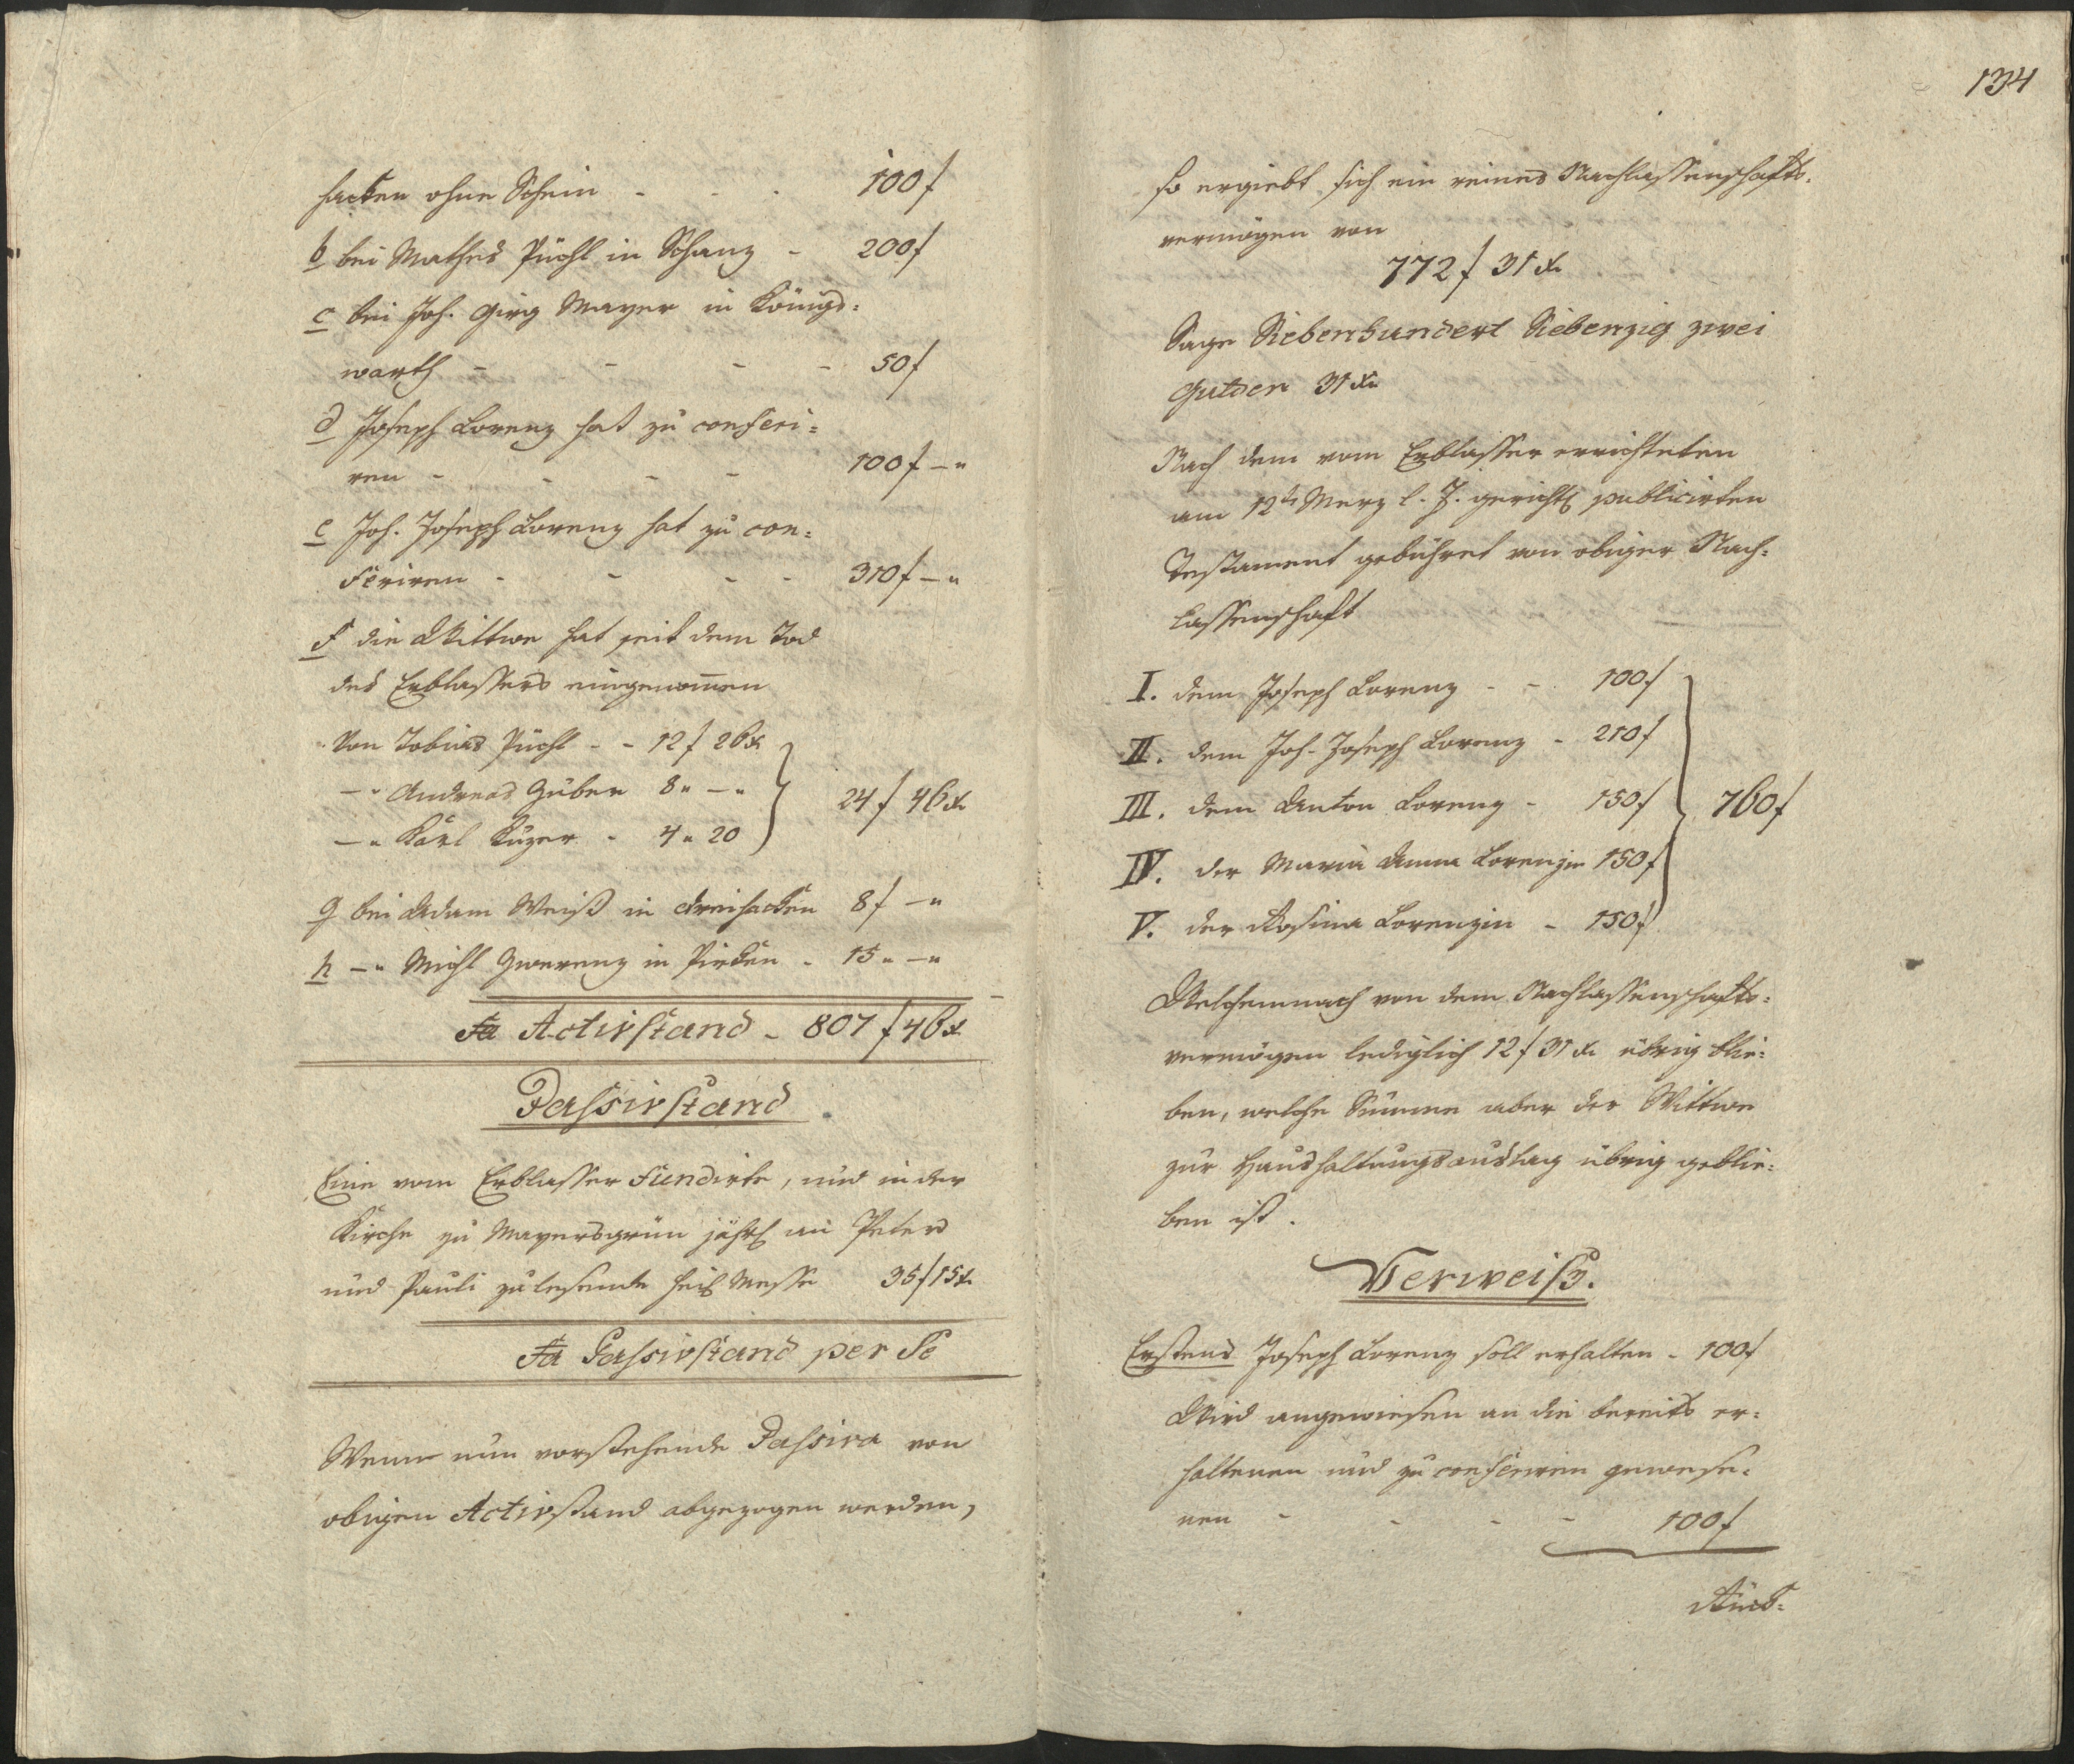 hacken ohne Schein - - - 100 f
b bei Mathes Püchl in Schanz - 200 f
c bei Joh. Girg Mayer in Königs=
warth - - - - 50 f
d Joseph Lorenz hat zu conferi=
ren - - - - 100 f — "
e Joh. Joseph Lorenz hat zu con=
feriren - - - - 310 f — "
f die Wittwe hat seit dem Tod
des Erblassers eingenom̅en
Von Tobias Püchl - - 12 f 26 x
— " Andreas Huber 8 " — "
24 f 46 x
— " Karl Kuzer - 4 " 20
g bei Adam Weiß in Dreihacken 8 f — "
h — " Michl Gwerenz in Pirken - 15 " — "
Sa Activstand - 807 f 46 x
Passivstand
Eine vom Erblasser fundirte, und in der
Kirche zu Mayersgrün jährl an Peter
und Pauli zu lesende heil Messe 35 f 15 x
Sa Passivstand per Se
Wenn nun vorstehende Passiva von
obigen Activstand abgezogen werden,
134
so ergiebt sich ein reines Nachlassenschafts=
vermögen von
772 f 31 x
Sage Siebenhundert Siebenzig zwei
Gulden 31 x
Nach dem vom Erblasser errichteten
am 12t Merz l. J. gerichtl publicirten
Testament gebühret von obiger Nach=
lassenschaft
I. dem Joseph Lorenz - - 100 f
II. dem Joh. Joseph Lorenz - 210 f
III. dem Anton Lorenz - 150 f
760 f
IV. der Maria Anna Lorenzin 150 f
V. der Rosina Lorenzin - 150 f
Welchemnach von dem Nachlassenschafts=
vermögen lediglich 12 f 31 x übrig blie=
ben, welche Summe aber der Wittwe
zur Haushaltungsauslag übrig geblie=
ben ist.
Verweiß.
Erstens Joseph Lorenz soll erhalten - 100 f
Wird angewiesen an die bereits er=
haltenen und zu conferiren gewese=
nen - - - - 100 f
Rück=